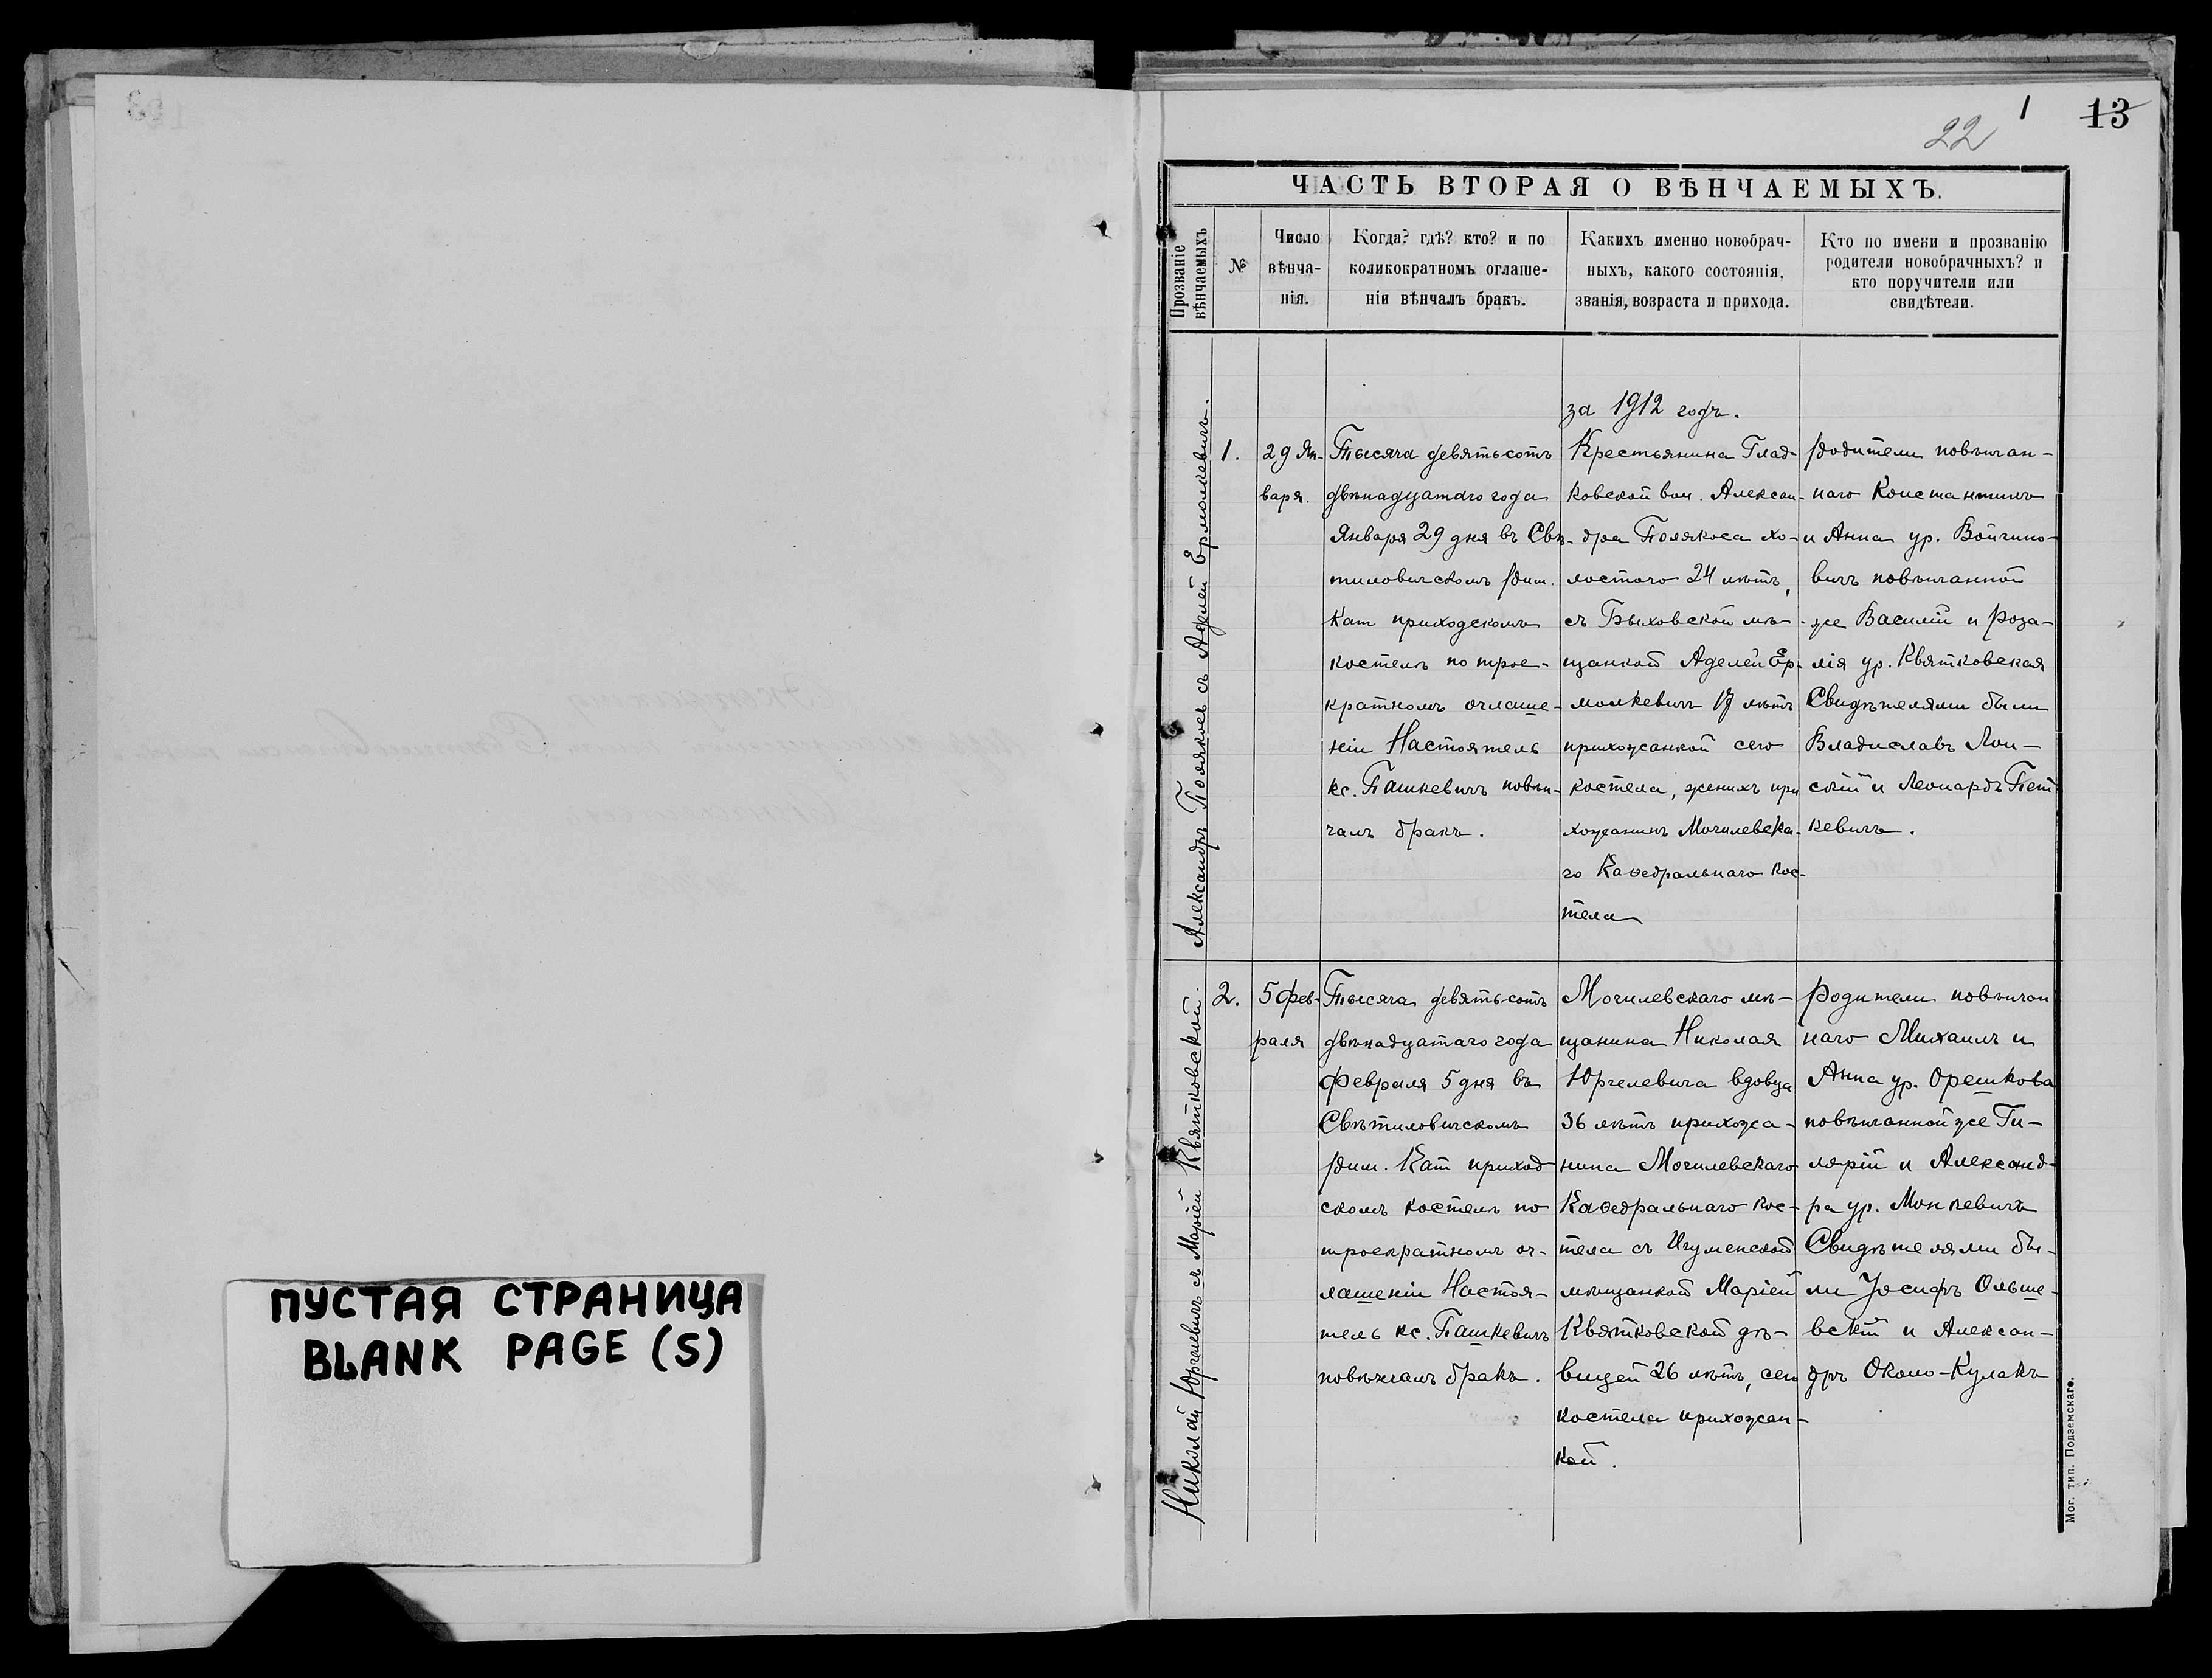 ПУСТАЯ СТРАНИЦА
BLANK PAGE (S)
22
1
13
ЧАСТЬ ВТОРАЯ О ВѢНЧАЕМЫХЪ.
Прозваніе
вѣнчаемыхъ
№
Число
вѣнча-
нія.
Когда? гдѣ? кто? и по
коликократномъ оглаше-
ніи вѣнчалъ бракъ.
Какихъ именно новобрач-
ныхъ, какого состоянія,
званія, возраста и прихода.
Кто по имени и прозванію
родители новобрачныхъ? и
кто поручители или
свидѣтели.
за 1912 годъ.
Александръ Поляковъ съ Аделей Ермолкевичъ.
1.
29 Ян-
варя.
Тысяча девятьсотъ
двѣнадцатаго года
Января 29 дня въ Свѣ-
тиловичскомъ Рим.
Кат приходскомъ
костелѣ по трое-
кратномъ оглаше-
ніи Настоятель
кс. Пашкевичъ повѣн-
чалъ бракъ.
Крестьянина Глад-
ковской вол. Алексан-
дра Полякоса хо-
лостого 24 лѣтъ,
съ Быховской мѣ-
щанкой Аделей Ер-
молкевичъ 17 лѣтъ
прихожанкой сего
костела, женихъ при
хожанинъ Могилевска-
го Каѳедральнаго кос-
тела
Родители повѣнчан-
наго Константинъ
и Анна ур. Войчино-
вичъ повѣнчанной
же Василій и Роза-
лія ур. Квятковская
Свидѣтелями были
Владиславъ Лон-
скій и Леонардъ Пет
кевичъ.
Николай Юргелевичъ съ Маріей Квятковской.
2.
5 Фев-
раля
Тысяча девятьсотъ
двѣнадцатаго года
Февраля 5 дня въ
Свѣтиловичскомъ
Рим. Кат приход
скомъ костелѣ по
троекратномъ ог-
лашеніи Настоя-
тель кс. Пашкевичъ
повѣнчалъ бракъ.
Могилевскаго мѣ-
щанина Николая
Юргелевича вдовца
36 лѣтъ прихожа-
нина Могилевскаго
Каѳедральнаго кос-
тела съ Игуменской
мѣщанкой Маріей
Квятковской дѣ-
вицей 26 лѣтъ, сего
костела прихожан-
кой.
Родители повѣнчан
наго Михаилъ и
Анна ур. Орешкова
повѣнчанной же Ги-
лярій и Александ-
ра ур. Монкевичъ
Свидѣтелями бы-
ли Іосифъ Ольше-
вскій и Алексан-
дръ Около-Кулакъ
Мог. тип. Подземскаго.